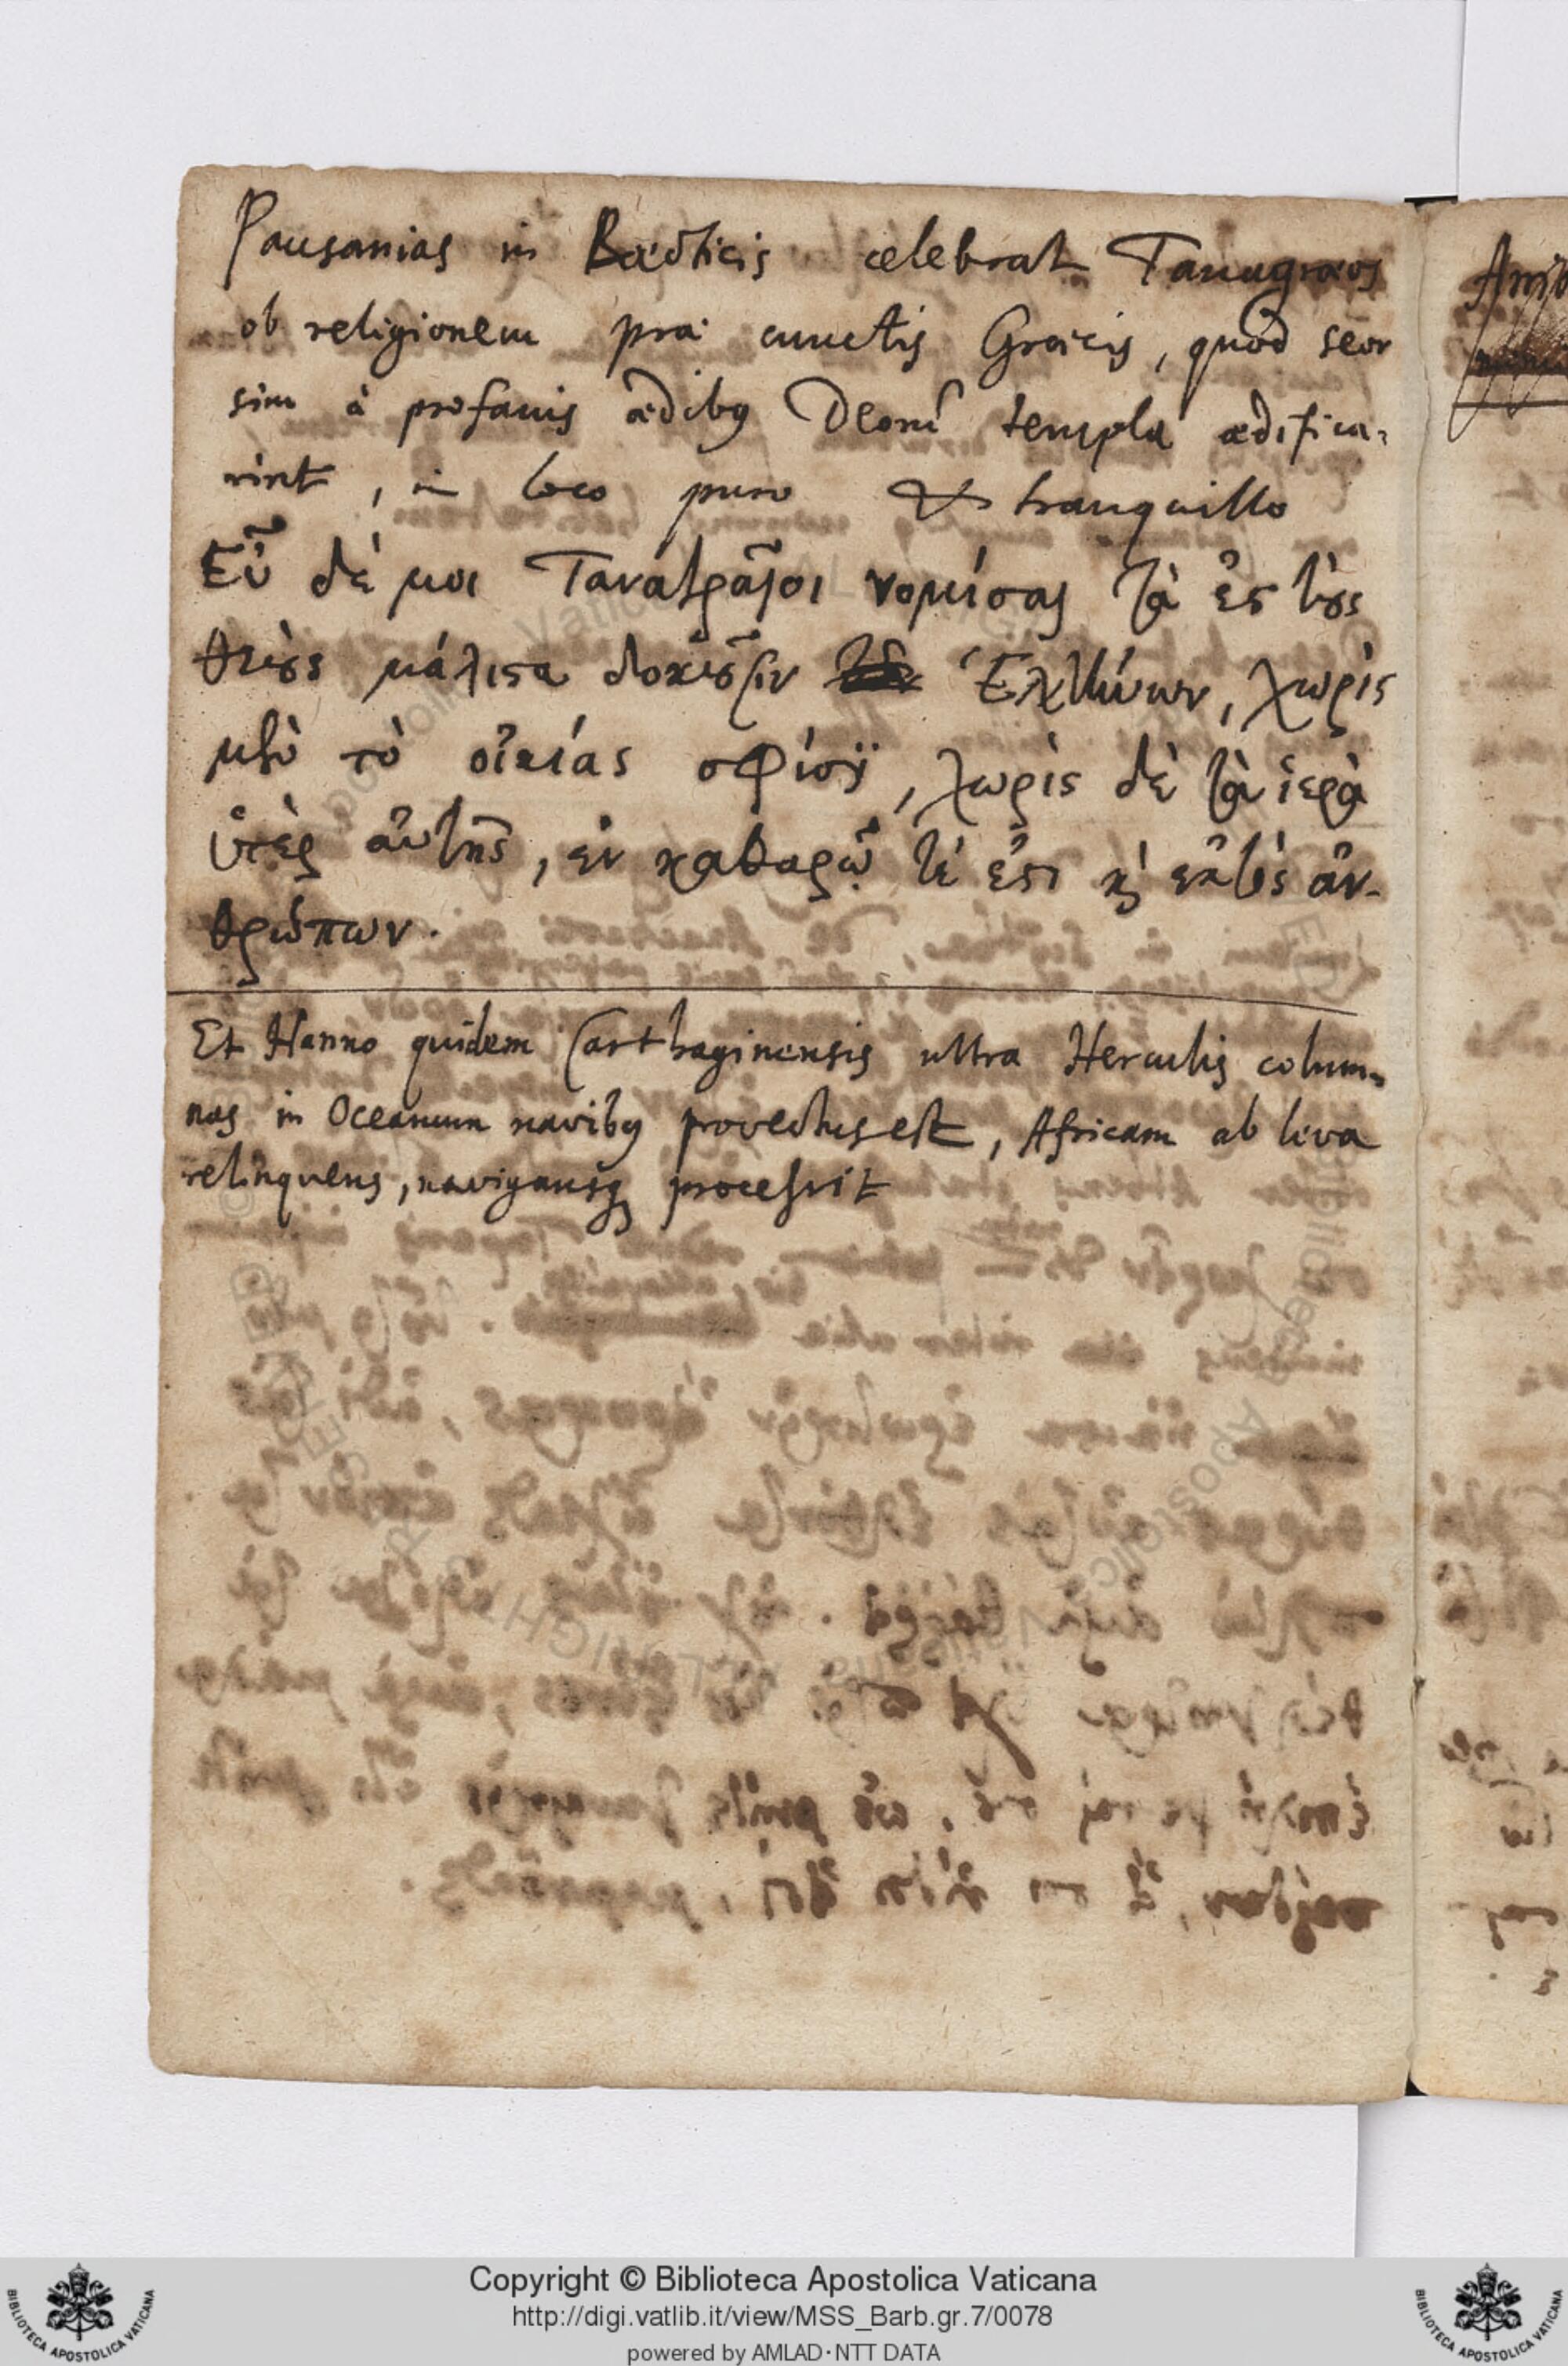 Pausanias in Bœoticis celebrat Tanagræos
ob religionem præ cunctis Græcis, quod seor
sim à profanis ædibus Deorũ templa ædifica-
rint, in loco puro & tranquillo
Εὖ δέ μοι Ταναγραῖοι νομίσαι τὰ ἐς τοὺς
θεοὺς μάλιστα δοκοῦσιν Ἑλλήνων, χωρὶς
μὲν τὸ οἰκίας σφίσι, χωρὶς δὲ τὰ ἱερὰ
ὑπὲρ αὐτῆς, ἐν καθαρῷ τέ ἐστι κὶ ἐκτὸς ἀν-
θρώπων.
Et Hanno quidem Carthaginensis ultra Herculis colum-
nas in Oceanum navibus provectus est, Africam ab leva
relinquens, navigansq processit
Copyright © Biblioteca Apostolica Vaticana
http://digi.vatlib.it/view/MSS_Barb.gr.7/0078
powered by AMLAD·NTT DATA
BIBLIOTECA APOSTOLICA VATICANA
BIBLIOTECA APOSTOLICA VATICANA